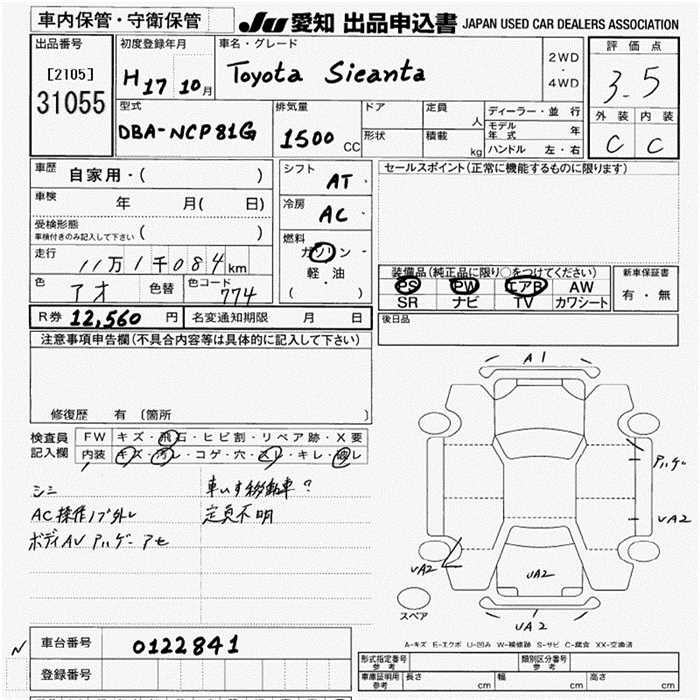 車内保管・守衛保管
JU 愛知 出品申込書 JAPAN USED CAR DEALERS ASSOCIATION
出品番号
[2105]
31055
初度登録年月
H17 10月
車名・グレード
Toyota Sieanta
2WD
・
4WD
評価点
3.5
外装 内装
C C
型式
DBA-NCP81G
排気量
1500 CC
ドア
形状
定員 人
積載 kg
ディーラー・並行
モデル年式 年
ハンドル 左・右
車歴 自家用・( )
車検 年 月( 日)
受検形態
車検付きのみ記入して下さい ( )
走行 11万1千084km
色 アオ 色替 色コード 774
シフト AT
冷房 AC
燃料
ガソリン
軽・油
( )
セールスポイント(正常に機能するものに限ります)
装備品(純正品に限り○をつけてください)
PS PW エアB AW
SR ナビ TV カワシート
新車保証書
有・無
R券 12,560 円 名変通知期限 月 日
後日品
注意事項申告欄(不具合内容等は具体的に記入して下さい)
修復歴 有 〔箇所 〕
検査員記入欄
FW キズ・飛石・ヒビ割・リペア跡・X要
内装 キズ・汚レ・コゲ・穴・スレ・キレ・破レ
シミ
AC操作ノブ外レ
ボディAV アハゲーアセ
車いす移動車?
定員不明
A1
アハゲ
UA2
UA2
UA2
UA2
スペア
A-キズ E-エクボ U-凹み W-補修跡 S-サビ C-腐食 XX-交換済
N
車台番号 0122841
登録番号
形式指定番号 参考
類別区分番号 参考
車庫証明用 参考 長さ cm 幅 cm 高さ cm